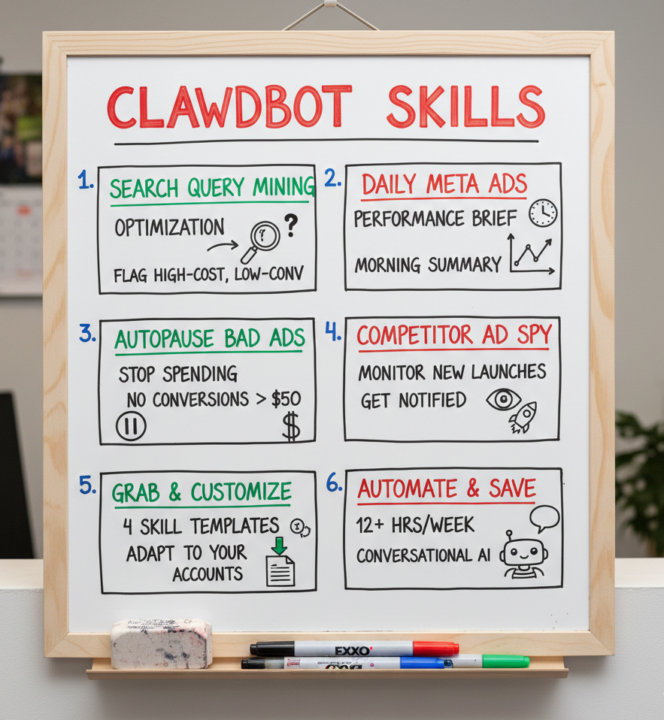 CLAWDBOT SKILLS
1. SEARCH QUERY MINING
OPTIMIZATION
?
?
FLAG HIGH-COST, LOW-CONV
2. DAILY META ADS
PERFORMANCE BRIEF
MORNING SUMMARY
3. AUTOPAUSE BAD ADS
STOP SPENDING
NO CONVERSIONS > $50
$
4. COMPETITOR AD SPY
MONITOR NEW LAUNCHES
GET NOTIFIED
5. GRAB & CUSTOMIZE
4 SKILL TEMPLATES
ADAPT TO YOUR
ACCOUNTS
6. AUTOMATE & SAVE
12+ HRS/WEEK
CONVERSATIONAL AI
EXXO